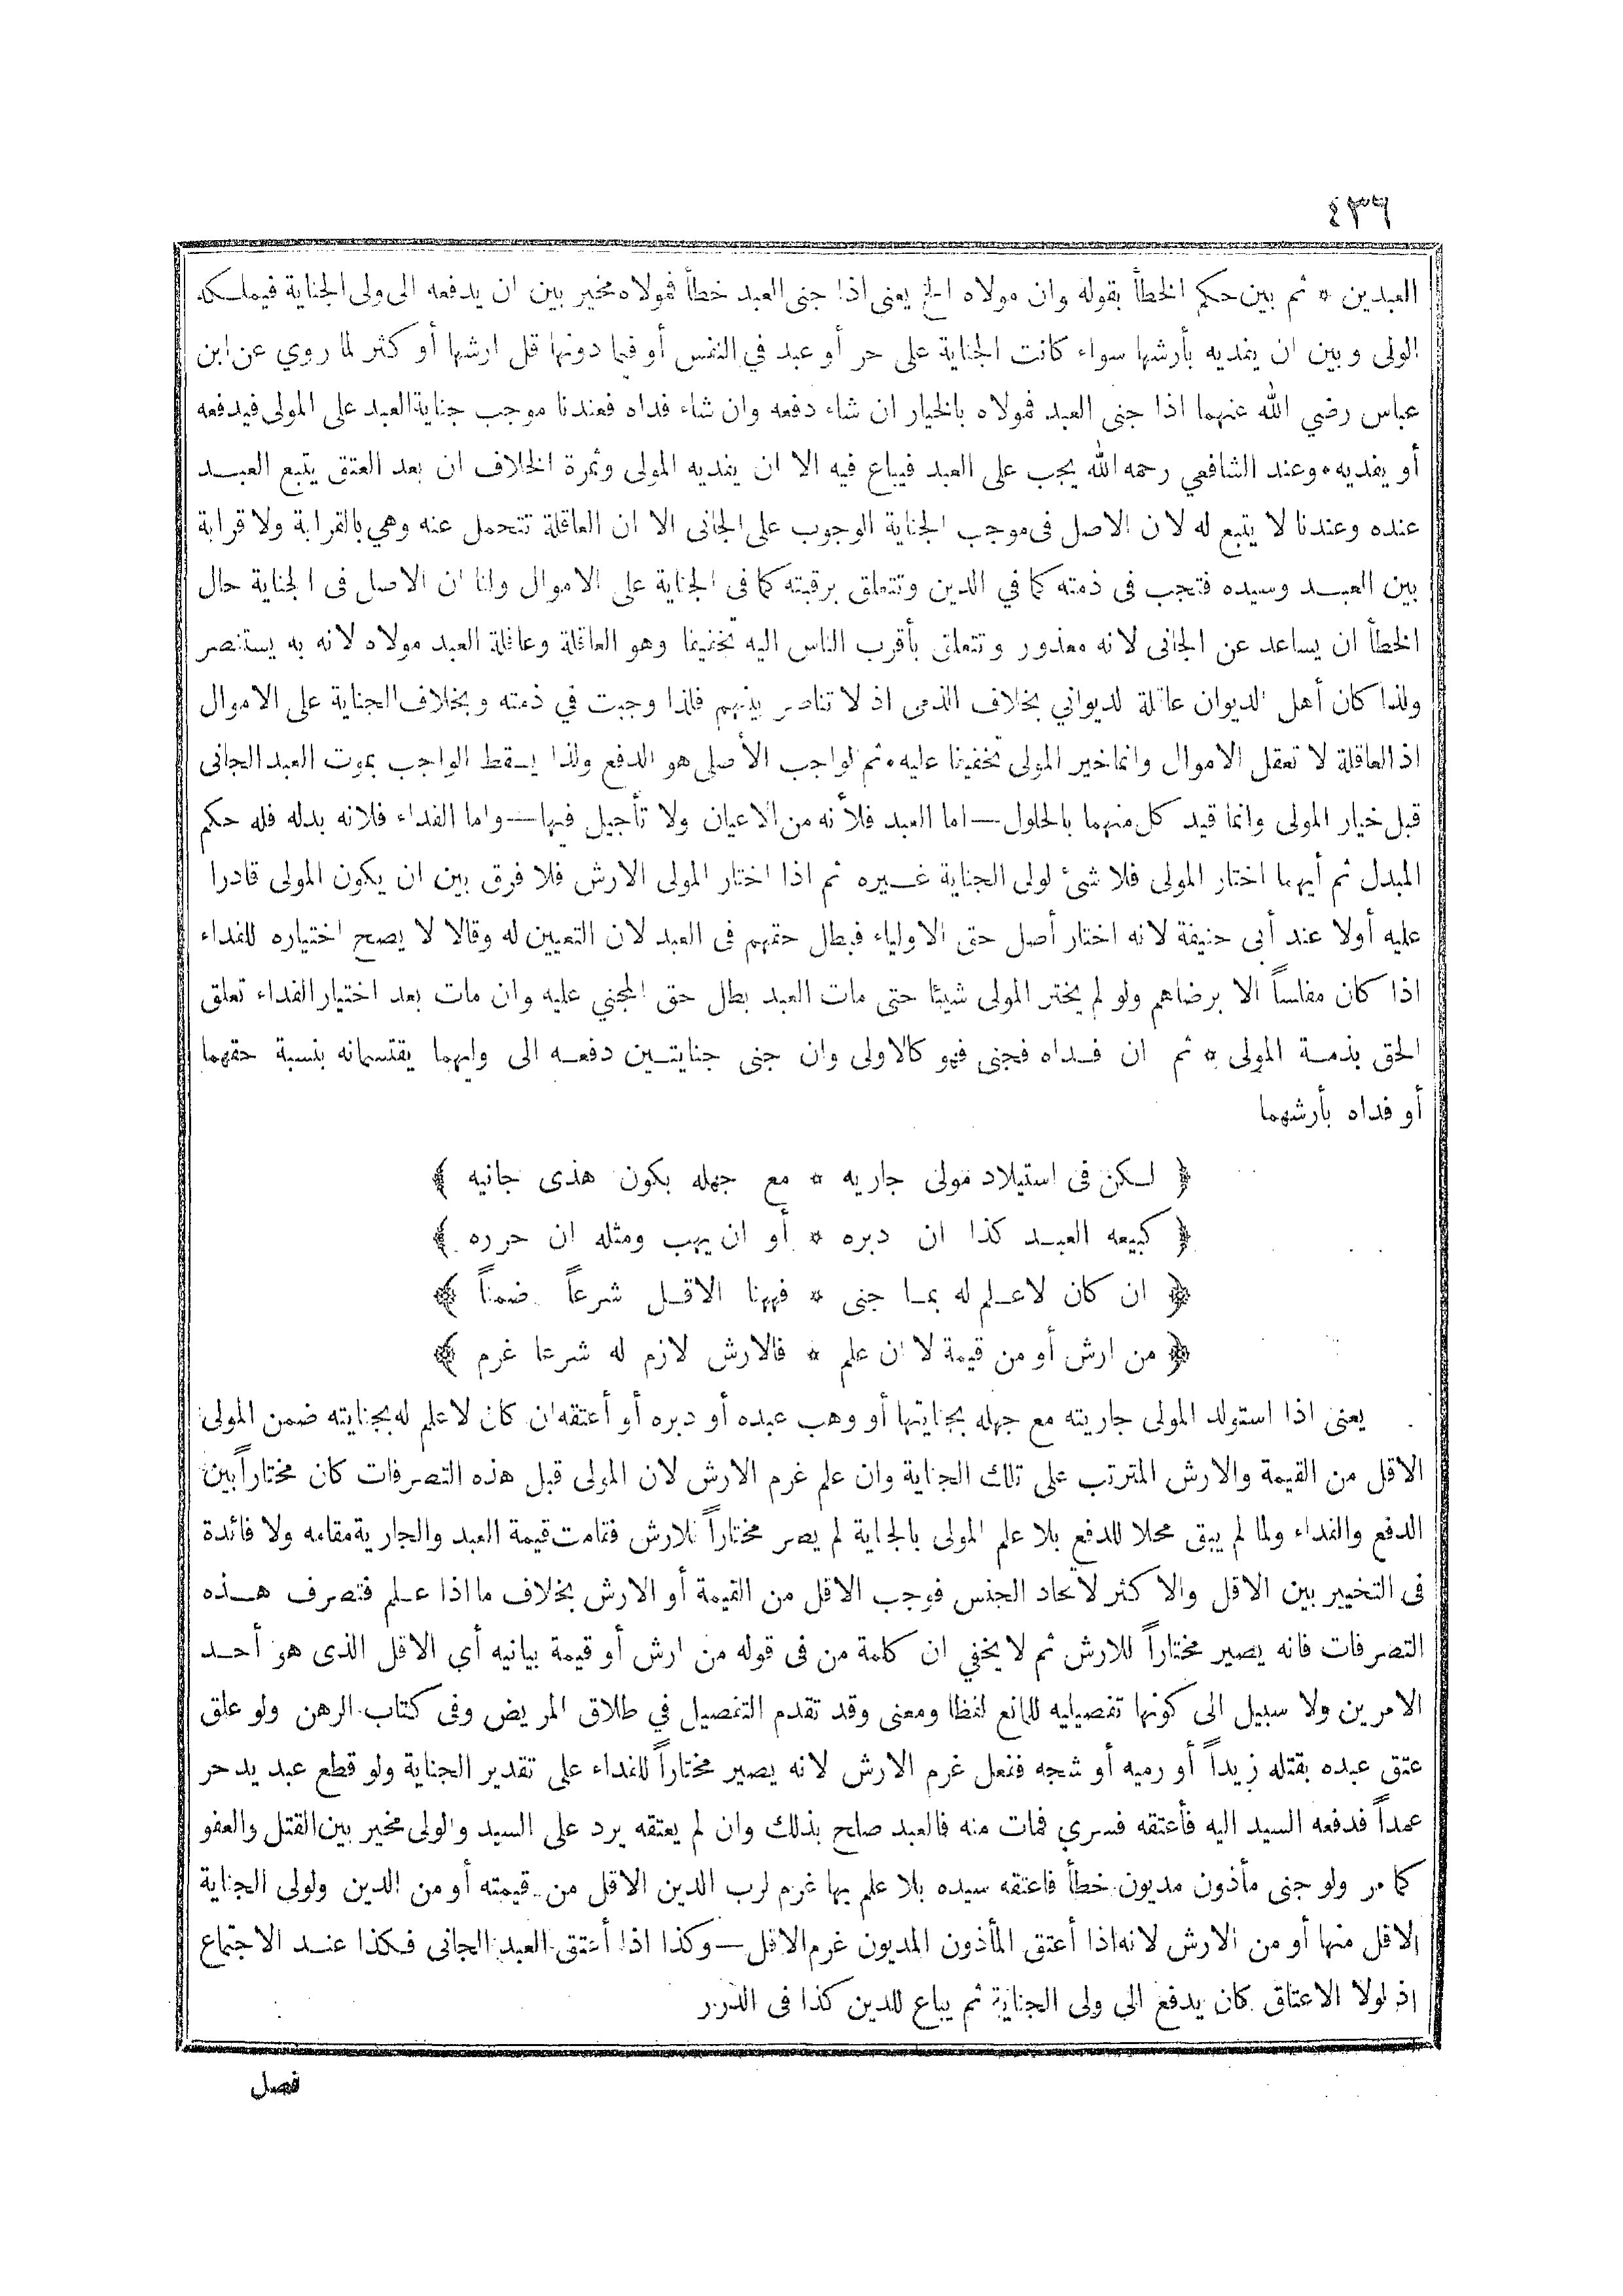 ٤٣٦
العبدين * ثم بين حكم الخطأ بقوله وان مولاه الخ يعنى اذا جنى العبد خطأ فمولاه مخير بين ان يدفعه الى ولى الجناية فيملكه
الولى وبين ان يفديه بأرشها سواء كانت الجناية على حر أو عبد في النفس أو فيما دونها قل ارشها أو كثر لما روي عن ابن
عباس رضي الله عنهما اذا جنى العبد فمولاه بالخيار ان شاء دفعه وان شاء فداه فعندنا موجب جناية العبد على المولى فيدفعه
أو يفديه * وعند الشافعي رحمه الله يجب على العبد فيباع فيه الا ان يفديه المولى وثمرة الخلاف ان بعد العتق يتبع العبد
عنده وعندنا لا يتبع له لان الاصل فى موجب الجناية الوجوب على الجانى الا ان العاقلة تتحمل عنه وهي بالقرابة ولا قرابة
بين العبد وسيده فتجب فى ذمته كما في الدين وتتعلق برقبته كما فى الجناية على الاموال ولنا ان الاصل فى الجناية حال
الخطأ ان يساعد عن الجانى لانه معذور وتتعلق بأقرب الناس اليه تخفيفا وهو العاقلة وعاقلة العبد مولاه لانه به يستنصر
ولذا كان أهل الديوان عاقلة لديواني بخلاف الذمى اذ لا تناصر بينهم فلذا وجبت في ذمته وبخلاف الجناية على الاموال
اذ العاقلة لا تعقل الاموال وانما خير المولى تخفيفا عليه * ثم الواجب الأصلى هو الدفع ولذا يسقط الواجب بموت العبد الجانى
قبل خيار المولى وانما قيد كل منهما بالحلول — اما العبد فلأنه من الاعيان ولا تأجيل فيها — واما الفداء فلانه بدله فله حكم
المبدل ثم أيهما اختار المولى فلا شئ لولى الجناية غيره ثم اذا اختار المولى الارش فلا فرق بين ان يكون المولى قادرا
عليه أولا عند أبى حنيفة لانه اختار أصل حق الاولياء فبطل حقهم فى العبد لان التعيين له وقالا لا يصح اختياره للفداء
اذا كان مفلساً الا برضاهم ولو لم يختر المولى شيئا حتى مات العبد بطل حق المجني عليه وان مات بعد اختيار الفداء تعلق
الحق بذمة المولى * ثم ان فداه فجنى فهو كالاولى وان جنى جنايتين دفعه الى وليهما يقتسمانه بنسبة حقهما
أو فداه بأرشهما
﴿ لكن فى استيلاد مولى جاريه * مع جهله بكون هذى جانيه ﴾
﴿ كبيعه العبد كذا ان دبره * أو ان يهب ومثله ان حرره ﴾
﴿ ان كان لا علم له بما جنى * فههنا الاقل شرعاً ضمناً ﴾
﴿ من ارش أو من قيمة لا ان علم * فالارش لازم له شرعا غرم ﴾
يعنى اذا استولد المولى جاريته مع جهله بجنايتها أو وهب عبده أو دبره أو أعتقه ان كان لا علم له بجنايته ضمن المولى
الاقل من القيمة والارش المترتب على تلك الجناية وان علم غرم الارش لان المولى قبل هذه التصرفات كان مختاراً بين
الدفع والفداء ولما لم يبق محلا للدفع بلا علم المولى بالجناية لم يصر مختاراً للارش فقامت قيمة العبد والجارية مقامه ولا فائدة
فى التخيير بين الاقل والاكثر لاتحاد الجنس فوجب الاقل من القيمة أو الارش بخلاف ما اذا علم فتصرف هذه
التصرفات فانه يصير مختاراً للارش ثم لا يخفي ان كلمة من فى قوله من ارش أو قيمة بيانيه أي الاقل الذى هو أحد
الامرين ولا سبيل الى كونها تفصيليه للمانع لفظا ومعنى وقد تقدم التفصيل في طلاق المريض وفى كتاب الرهن ولو علق
عتق عبده بقتله زيداً أو رميه أو شجه ففعل غرم الارش لانه يصير مختاراً للفداء على تقدير الجناية ولو قطع عبد يد حر
عمداً فدفعه السيد اليه فأعتقه فسري فمات منه فالعبد صلح بذلك وان لم يعتقه يرد على السيد والولى مخير بين القتل والعفو
كما مر ولو جنى مأذون مديون خطأ فاعتقه سيده بلا علم بها غرم لرب الدين الاقل من قيمته أو من الدين ولولى الجناية
الاقل منها أو من الارش لانه اذا أعتق المأذون المديون غرم الاقل — وكذا اذا أعتق العبد الجانى فكذا عند الاجتماع
اذ لولا الاعتاق كان يدفع الى ولى الجناية ثم يباع للدين كذا فى الدرر
فصل